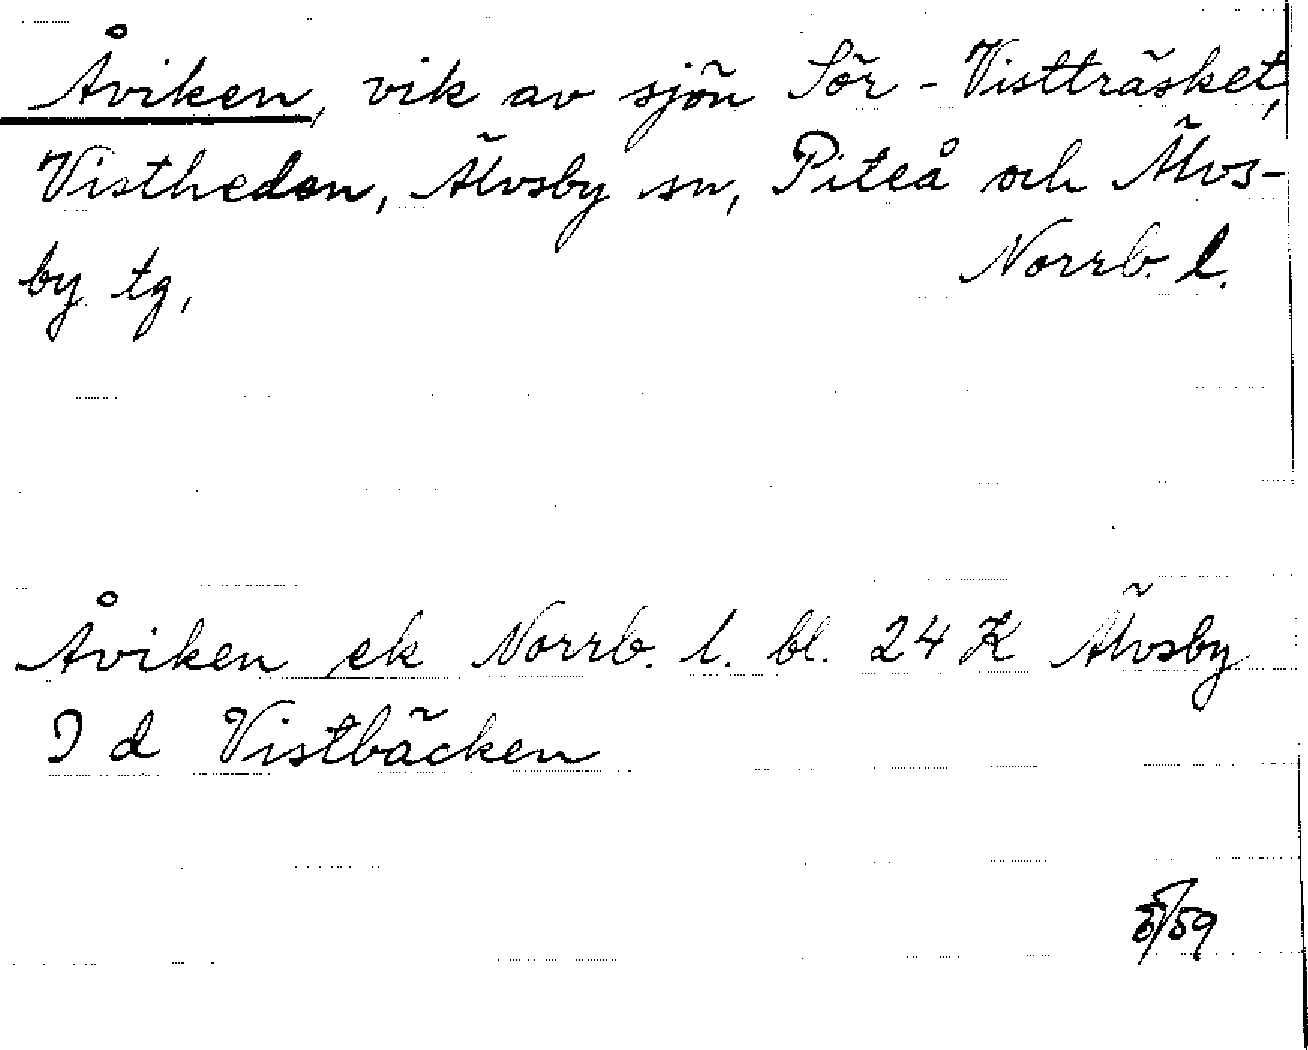 Åviken, vik av sjön Sör-Vistträsket,
Vistheden, Älvsby sn, Piteå och Älvs-
by tg,
Norrb. l.
Åviken ek Norrb. l. bl. 24 K Älvsby
I d Vistbäcken
/59